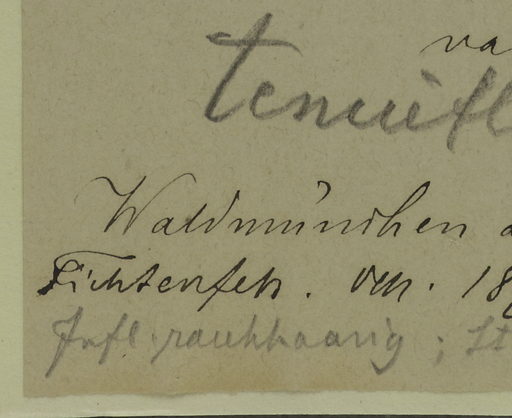 va
tenuifl
Waldmünchen a
Fichten
18
Infl. rauhhaarig; St